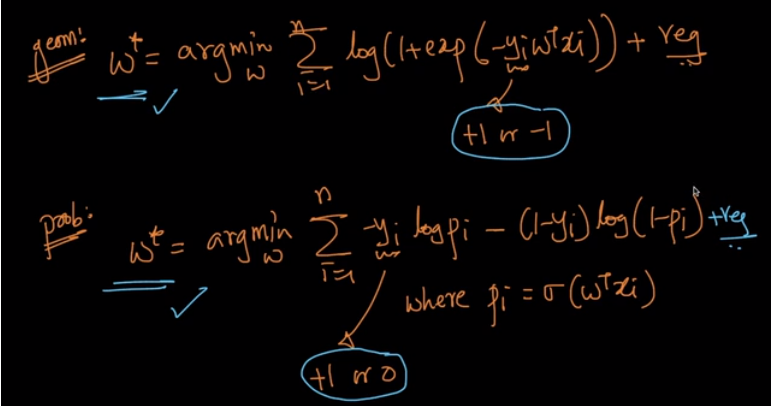 geom: w* = argmin_w Σ_{i=1}^{n} log(1+exp(-y_i w^T x_i)) + reg
+1 or -1
prob: w* = argmin_w Σ_{i=1}^{n} -y_i log p_i - (1-y_i) log(1-p_i) + reg
where p_i = σ(w^T x_i)
+1 or 0